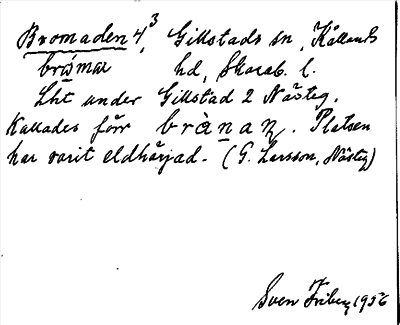 Bromaden 4³, Gillstads sn, Kållands
bròmar hd, Skarab. l.
Lht under Gillstad 2 Nästeg.
Kallades förr brànan. Platsen
har varit eldhärjad. (G. Larsson, Nästeg)
Sven Friberg 1956